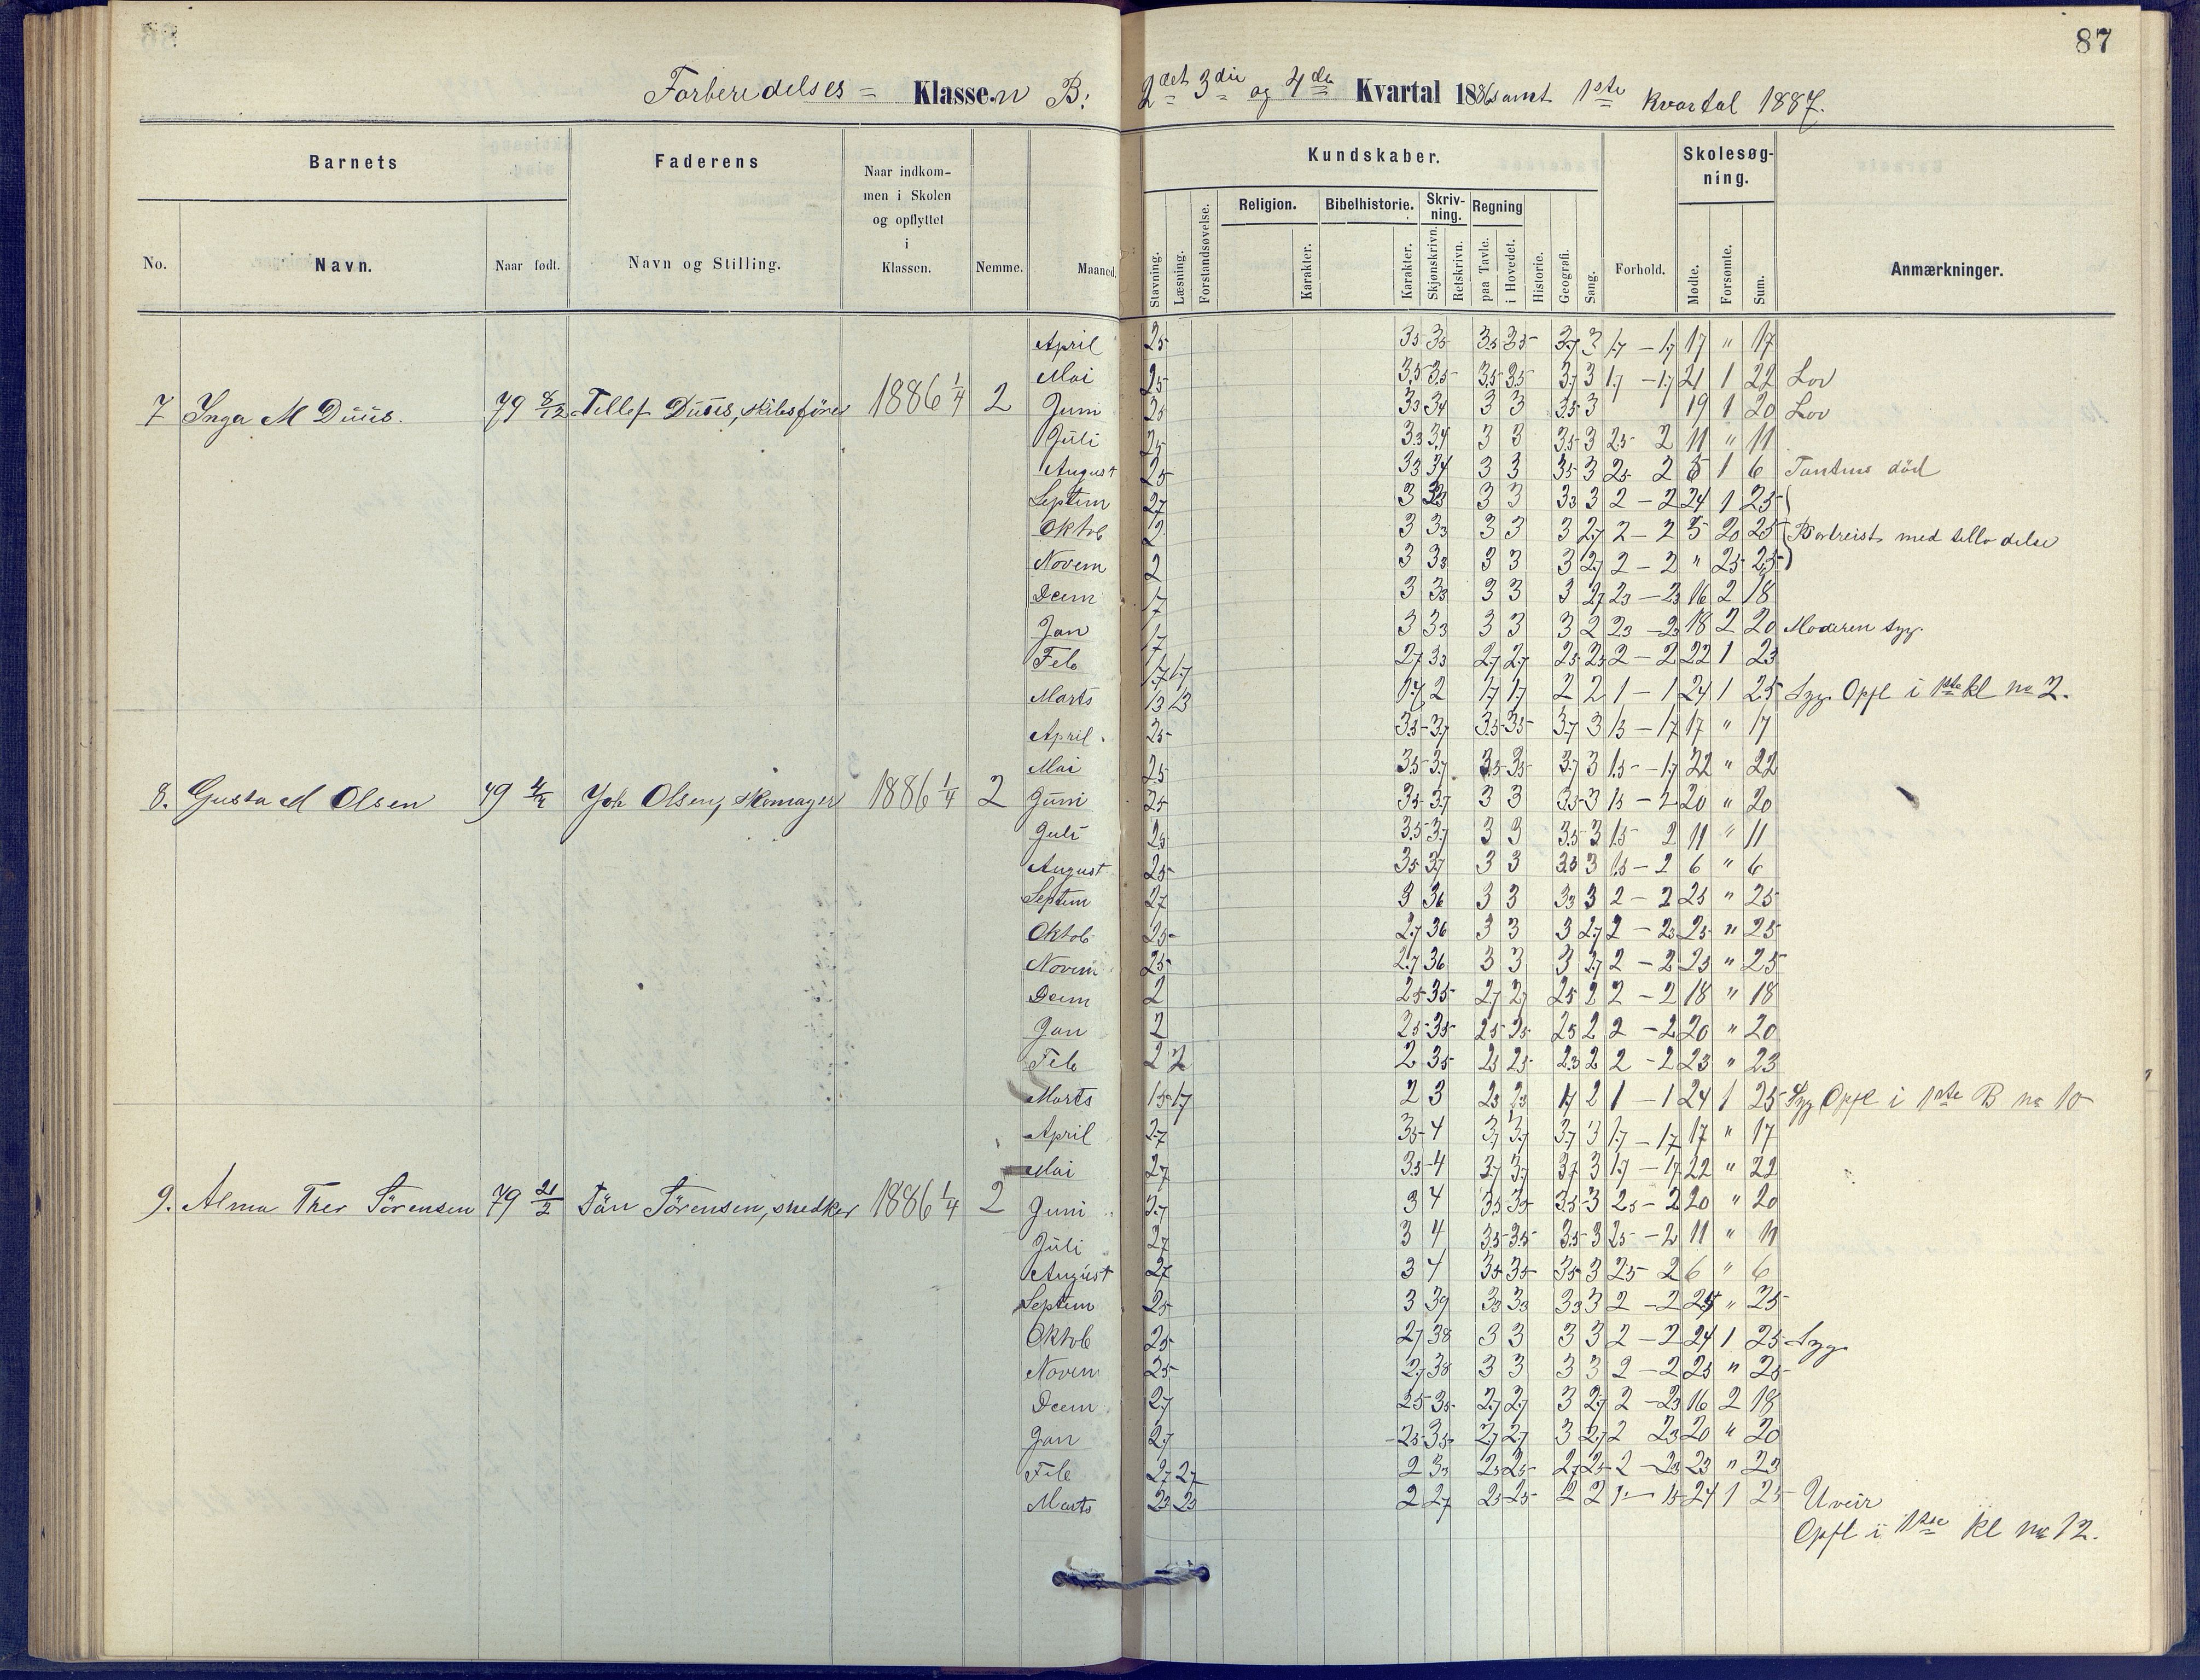 87
Forberedelses= Klassen B. 2det 3die og 4de Kvartal 1886 samt 1ste Kvartal 1887.
Barnets Faderens Naar indkommen i Skolen og opflyttet i Klassen. Nemme. Maaned. Kundskaber. Forhold. Skolesøgning. Anmærkninger.
No. Navn. Naar født. Navn og Stilling. Stavning. Læsning. Forstandsøvelse. Religion. Karakter. Bibelhistorie. Karakter. Skrivning. Skjønskrivn. Retskrivn. Regning paa Tavle. i Hovedet. Historie. Geografi. Sang. Mødte. Forsømte. Sum.
April 25 35 35 35 35 37 3 17 – 17 17 " 17
Mai 25 35 35 35 35 37 3 17 – 17 21 1 22 Lov
7 Inga M Duus. 79 8/12 Tellef Duus, skibsfører 1886 1/4 2 Juni 25 33 34 3 3 35 3 19 1 20 Lov
Juli 25 33 34 3 3 35 3 25 2 11 " 11
August 25 33 34 3 3 35 3 25 2 5 1 6 Tantens död
Septem 27 3 33 3 3 33 3 2 – 2 24 1 25
Oktob 2 3 33 3 3 3 27 2 – 2 5 20 25 Bortreist med
Novem 2 3 33 3 3 3 27 2 – 2 " 25 25
Decm 17 3 33 3 3 3 27 23 – 23 16 2 18
Jan 17 3 33 3 3 3 2 23 – 23 18 2 20 Moderen syg
Feb 17 17 27 33 27 27 25 25 2 – 2 22 1 23
Marts 13 13 17 2 17 17 2 2 1 – 1 24 1 25 Syg. Opfl i 1ste kl no 2.
April 25 35 37 35 35 37 3 13 – 17 17 " 17
Mai 25 35 37 35 35 37 3 15 – 17 22 " 22
8. Gusta M Olsen 79 Joh Olsen, skomager 1886 1/4 2 Juni 25 35 37 3 3 35 3 15 – 2 20 " 20
Juli 25 35 37 3 3 35 3 15 2 11 " 11
August 25 35 37 3 3 35 3 15 – 2 6 " 6
Septem 27 3 36 3 3 33 3 2 – 2 25 " 25
Oktob 25 27 36 3 3 3 27 2 – 23 25 " 25
Novem 25 27 36 3 3 3 27 2 – 2 25 " 25
Decm 2 25 35 27 27 25 2 2 – 2 18 " 18
Jan 2 25 35 25 25 25 2 2 – 2 20 " 20
Feb 2 2 2 35 25 25 23 2 2 – 2 23 " 23
Marts 15 17 2 3 23 23 17 2 1 – 1 24 1 25 Syg Opfl i 1ste B no 10
April 27 35 4 37 37 37 3 17 – 17 17 " 17
Mai 27 35 4 37 37 37 3 17 – 17 22 " 22
9. Alma Ther Sörensen 79 21/2 Sörensen, snedker 1886 1/4 2 Juni 27 3 4 35 35 35 3 25 – 2 20 " 20
Juli 27 3 4 35 35 35 3 25 – 2 11 " 11
August 27 3 4 35 35 35 3 25 2 6 " 6
Septem 25 3 39 33 33 33 3 2 – 2 25 " 25
Oktob 25 27 38 3 3 3 3 2 – 2 24 1 25 Syg
Novem 25 27 38 3 3 3 3 2 – 2 25 " 25
Decm 27 25 35 27 27 3 27 2 – 23 16 2 18
Jan 27 25 35 27 27 3 27 2 23 20 " 20
Feb 27 27 2 33 25 25 27 25 2 – 23 23 " 23
Marts 23 23 2 27 25 25 2 2 1 – 15 24 1 25 Uveir
Opfl i 1ste kl no 12.